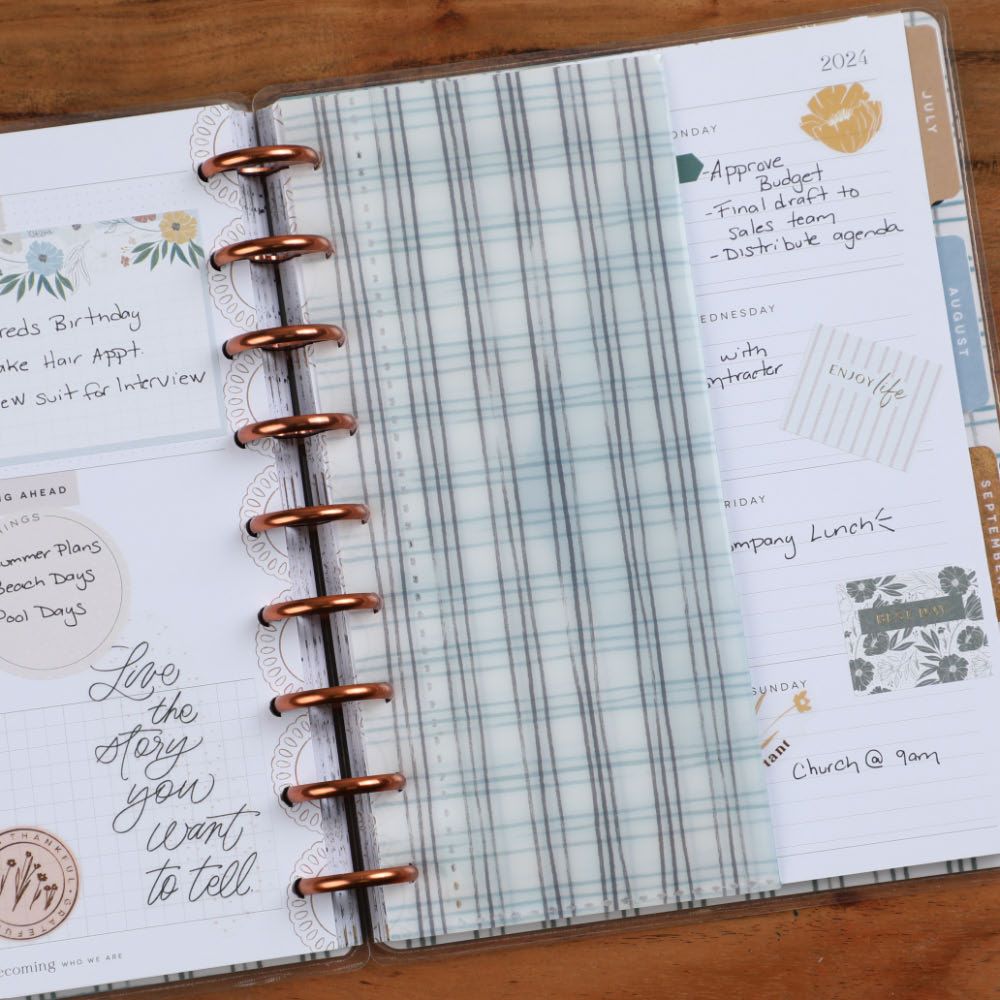 reds Birthday
ake Hair Appt.
ew suit for Interview
NG AHEAD
INGS
Summer Plans
Beach Days
Pool Days
Live
the
story
you
want
to tell.
THANKFUL
GRATEFUL
ecoming WHO WE ARE
2024
ONDAY
-Approve
Budget
-Final draft to
sales team
-Distribute agenda
EDNESDAY
with
ntracter
ENJOY life
RIDAY
ompany Lunch
BEST DAY
SUNDAY
tant
Church @ 9am
JULY
AUGUST
SEPTEMBE